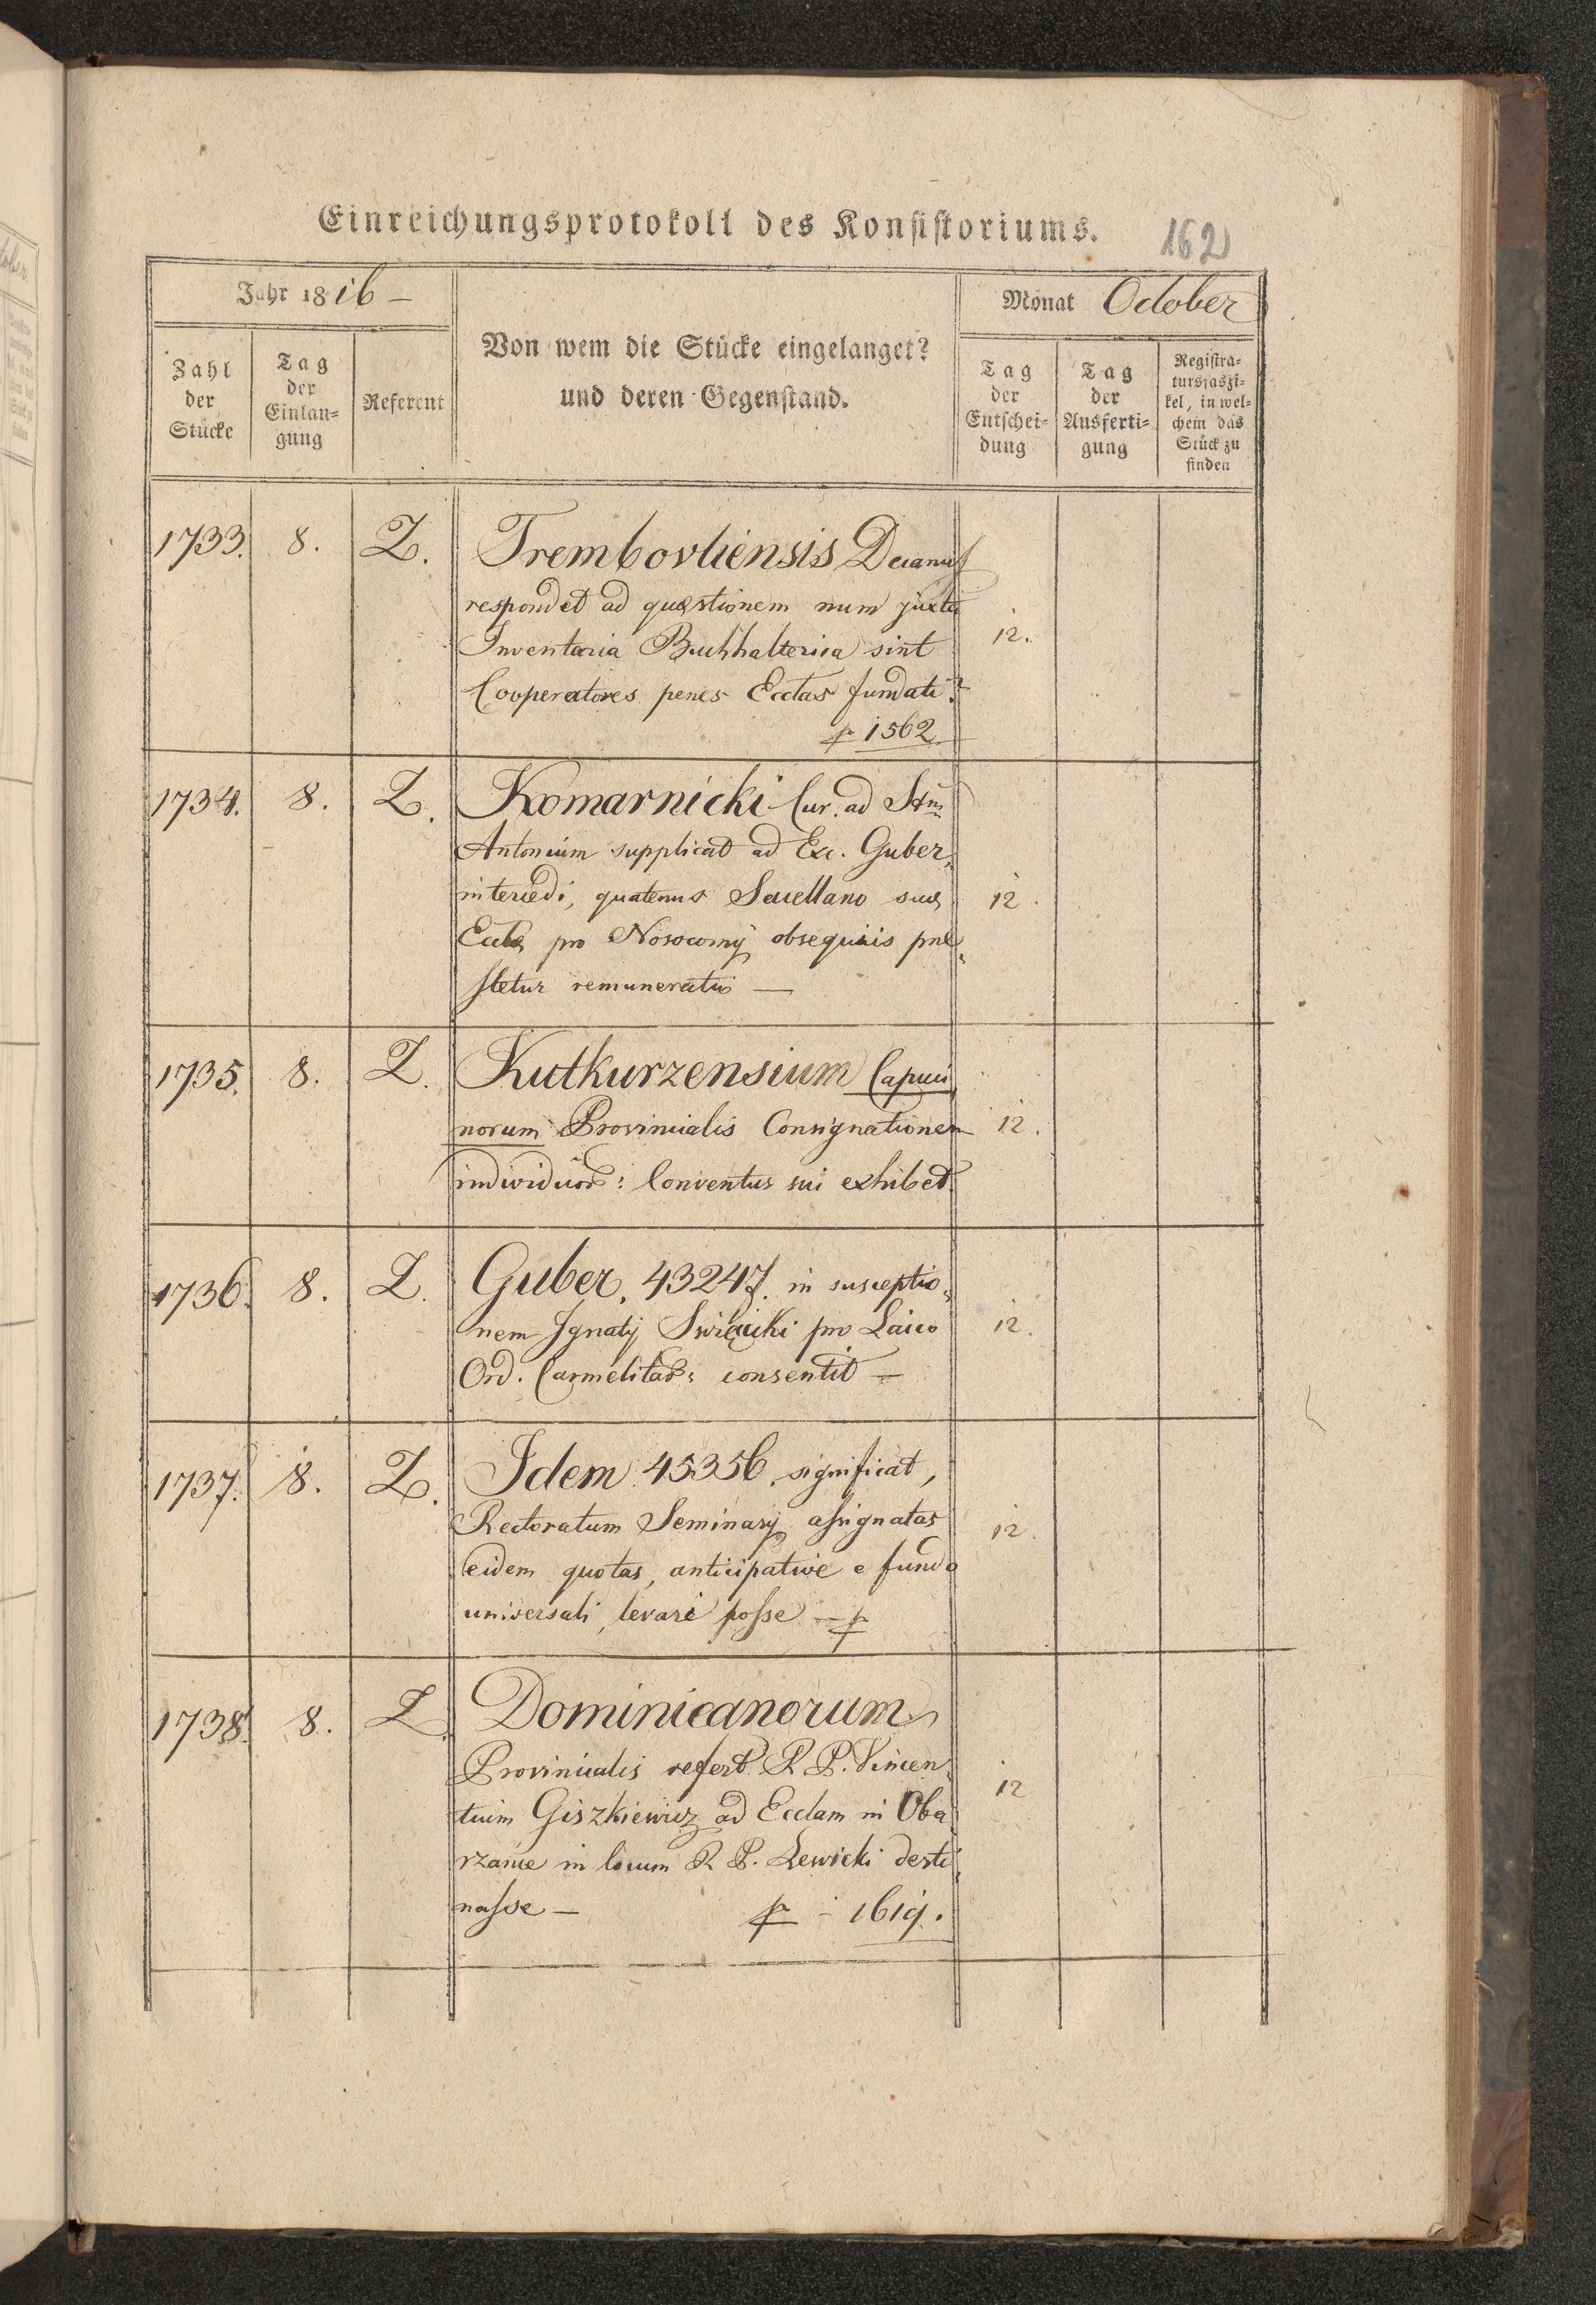 Einreichungsprotokoll des Konsistoriums.
162
Jahr 1816 —
Von wem die Stücke eingelanget?
und deren Gegenstand.
Monat October
Zahl
der
Stücke
Tag
der
Einlan=
gung
Referent
Tag
der
Entschei=
dung
Tag
der
Ausferti=
gung
Registra=
tursfaszi=
kel, in wel=
chem das
Stück zu
finden
1733. 8. Z. Trembovliensis Decanus
respondet ad quæstionem num juxta
Inventaria Buchhalterica sint 12.
Cooperatores penes Ecclas fundati?
1562
1734. 8. Z. Komarnicki Cur. ad Stm
Antonium supplicat ad Exc. Guber,
intercedi, quatenus Sacellano suæ 12.
Ecclæ pro Nosocomÿ obsequiis præ
stetur remuneratio —
1735. 8. Z. Kutkurzensium Capuci
norum Provincialis Consignationem 12.
individuor: Conventus sui exhibet.
1736. 8. Z. Guber. 43247. in susceptio
nem Ignatÿ Swięcicki pro Laico 12.
Ord. Carmelitar: consentit —
1737. 8. Z. Idem 45356. significat,
Rectoratum Seminarÿ assignatas 12.
eidem quotas, anticipative e fundo
universali, levare posse —
1738. 8. Z. Dominicanorum
Provincialis refert R. P. Vincen
tium Giszkiewicz ad Ecclam in Oba 12
rzańce in locum R. P. Lewicki desti
nasse — 1619.